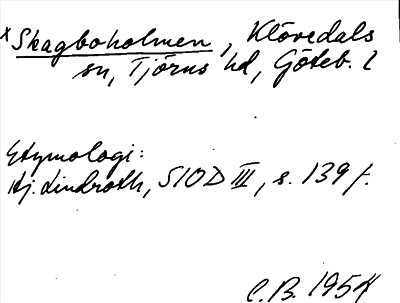 x Skagboholmen, Klövedals
sn, Tjörns hd, Göteb. l
Etymologi:
Hj. Lindroth, SIOD III, s. 139 f.
C.B. 1954